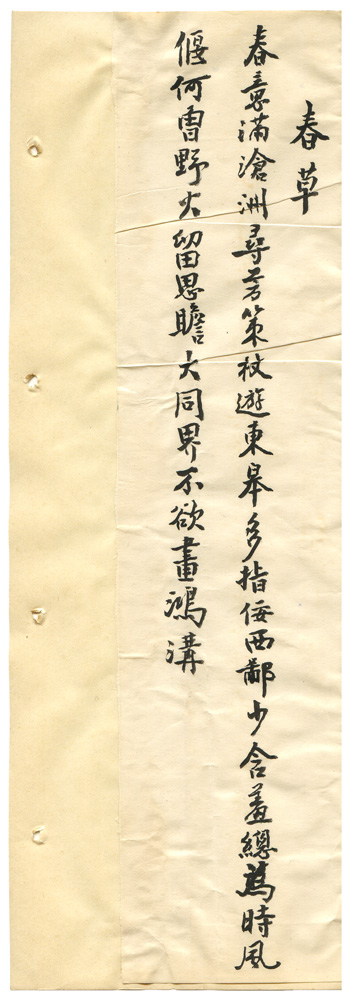 春草
春意滿滄洲尋芳策杖遊東皋多指佞西鄙少含羞總為時風
偃何曾野火留思瞻大同界不欲畫鴻溝